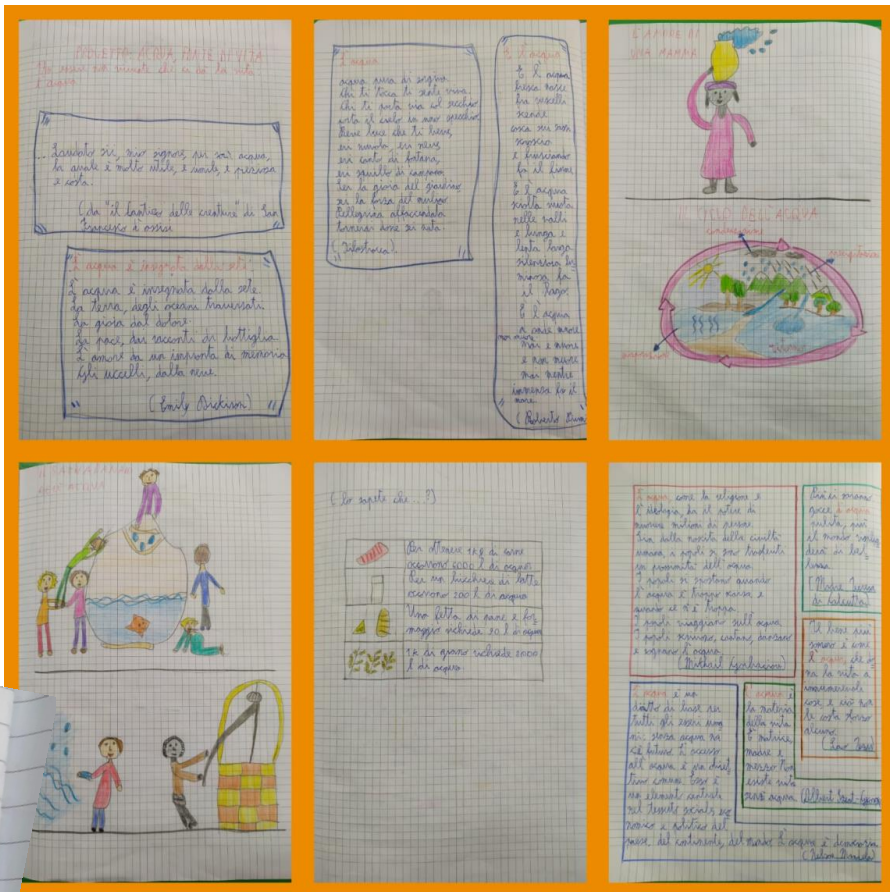 PROGETTO: ACQUA, FONTE DI VITA
... Laudato sie, mio signore, per sora acqua,
la quale è molto utile, e umile, e preziosa
e casta.
(da "il cantico delle creature" di San
Francesco
L'acqua è insegnata dalla sete.
L'acqua è insegnata dalla sete.
La terra, dagli oceani traversati.
La gioia dal dolore.
La pace, dai racconti di battaglia.
L'amore da un impronta di memoria
Gli uccelli, dalla neve.
(Emily Dickinson)
L'acqua
acqua
Chi ti tocca ti sente viva.
Chi ti porta via col secchio
porta il cielo in uno specchio
in nuvola, in neve,
in canto di fontana,
Per la gioia del giardino
sei la forza del mulino
Pellegrina affaccendata
tornerai dove sei nata.
E l'acqua
E l'acqua
fresca nasce
fa ruscelli
scende
e frusciando
fa il fiume
E l'acqua
nelle valli
e lunga e
lenta
silenziosa
fa
il lago
E l'acqua
mai e muore
e non muore
mai mentre
immensa fa il
mare
(Roberto
L'AMORE DI
UNA MAMMA
IL CICLO DELL'ACQUA
DELL'ACQUA
(Lo sapete che ...?)
Per ottenere 1 kg di carne
occorrono l di acqua
Per un bicchiere di latte
occorrono 200 l di acqua
Una fetta di pane e for
maggio richiede 90 l di acqua
1 k di grano richiede
l di acqua.
L'acqua, come la religione e
l'ideologia, ha il potere di
muovere milioni di persone.
Sin dalla nascita della civiltà
umana, i popoli si sono
in prossimità dell'acqua.
I popoli si spostano quando
l'acqua è troppo scarsa e
quando ce n'è troppa.
I popoli viaggiano sull'acqua.
I popoli scrivono, cantano, danzano
e sognano l'acqua.
(Mikhail
gocce,
pulita, più
il mondo
[Madre Teresa
di Calcutta]
Il bene più
è come
l'acqua, che do
na la vita a
cose, e ciò non
le costa sforzo
alcuno.
L'acqua è un
diritto di base per
tutti gli esseri uma
ni: senza acqua no
c'è futuro. L'accesso
all'acqua è un obiet
tivo comune. Esso è
un elemento centrale
nel tessuto sociale, eco
nomico e politico del
paese, del continente, del mondo. L'acqua è democrazia
(Nelson Mandela)
L'acqua è
la materia
della vita
È matrice,
madre e
mezzo. Non
esiste vita
senza acqua (Albert